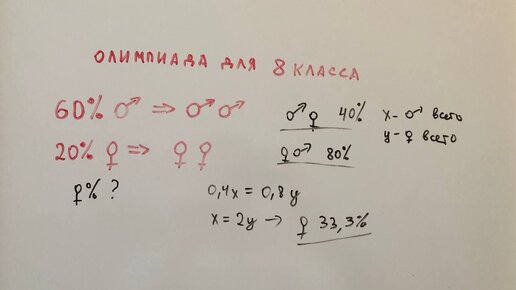 ОЛИМПИАДА ДЛЯ 8 КЛАССА
60% ♂ ⇒ ♂♂
20% ♀ ⇒ ♀♀
♀% ?
♂♀ 40%
♀♂ 80%
x - ♂ всего
y - ♀ всего
0,4x = 0,8y
x = 2y → ♀ 33,3%